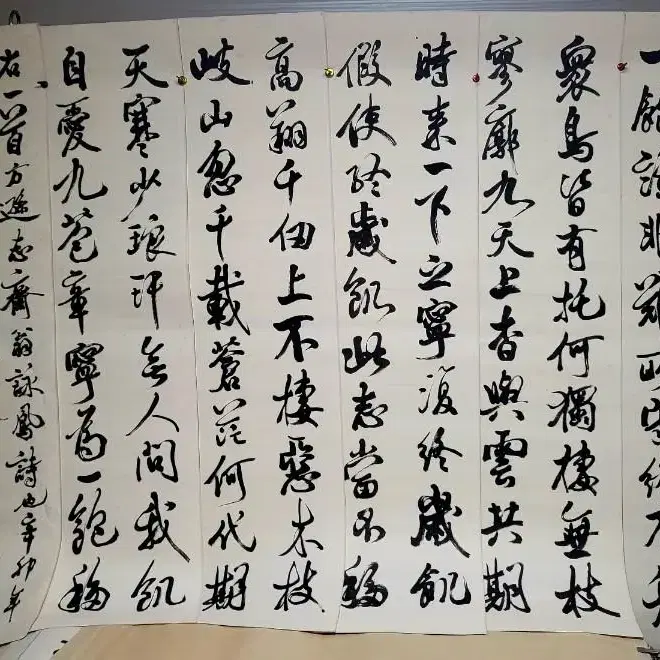 一飽諒非難所守終不
衆鳥皆有托何獨棲無枝
寥廓九天上杳與雲共期
時來一下之寧復終歲飢
假使終歲飢此志當不移
高翔千仞上不棲惡木枝
岐山忽千載蒼茫何代期
天寒少琅玕無人問我飢
自愛九苞章寧為一飽移
右一首方遜志齋翁詠鳳詩也辛卯年